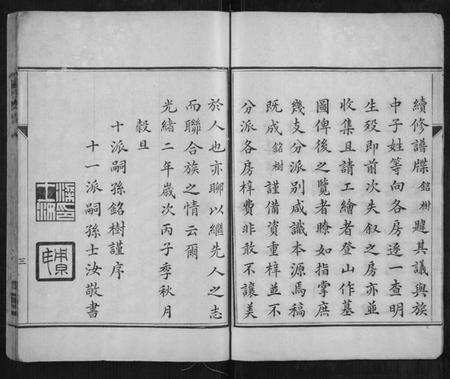 續修譜牒銘樹踵其議與族
中子姓等向各房逐一查明
生殁即前次失叙之房亦並
收集且請工繪者登山作墓
圖俾後之覽者瞭如指掌庶
幾支分派別咸識本源焉稿
既成銘樹謹備資重梓並不
分派各房梓費非敢不讓美
於人也亦聊以繼先人之志
而聯合族之情云爾
光緒二年歲次丙子季秋月
穀旦
十派嗣孫銘樹謹序
十一派嗣孫士汝敬書
三